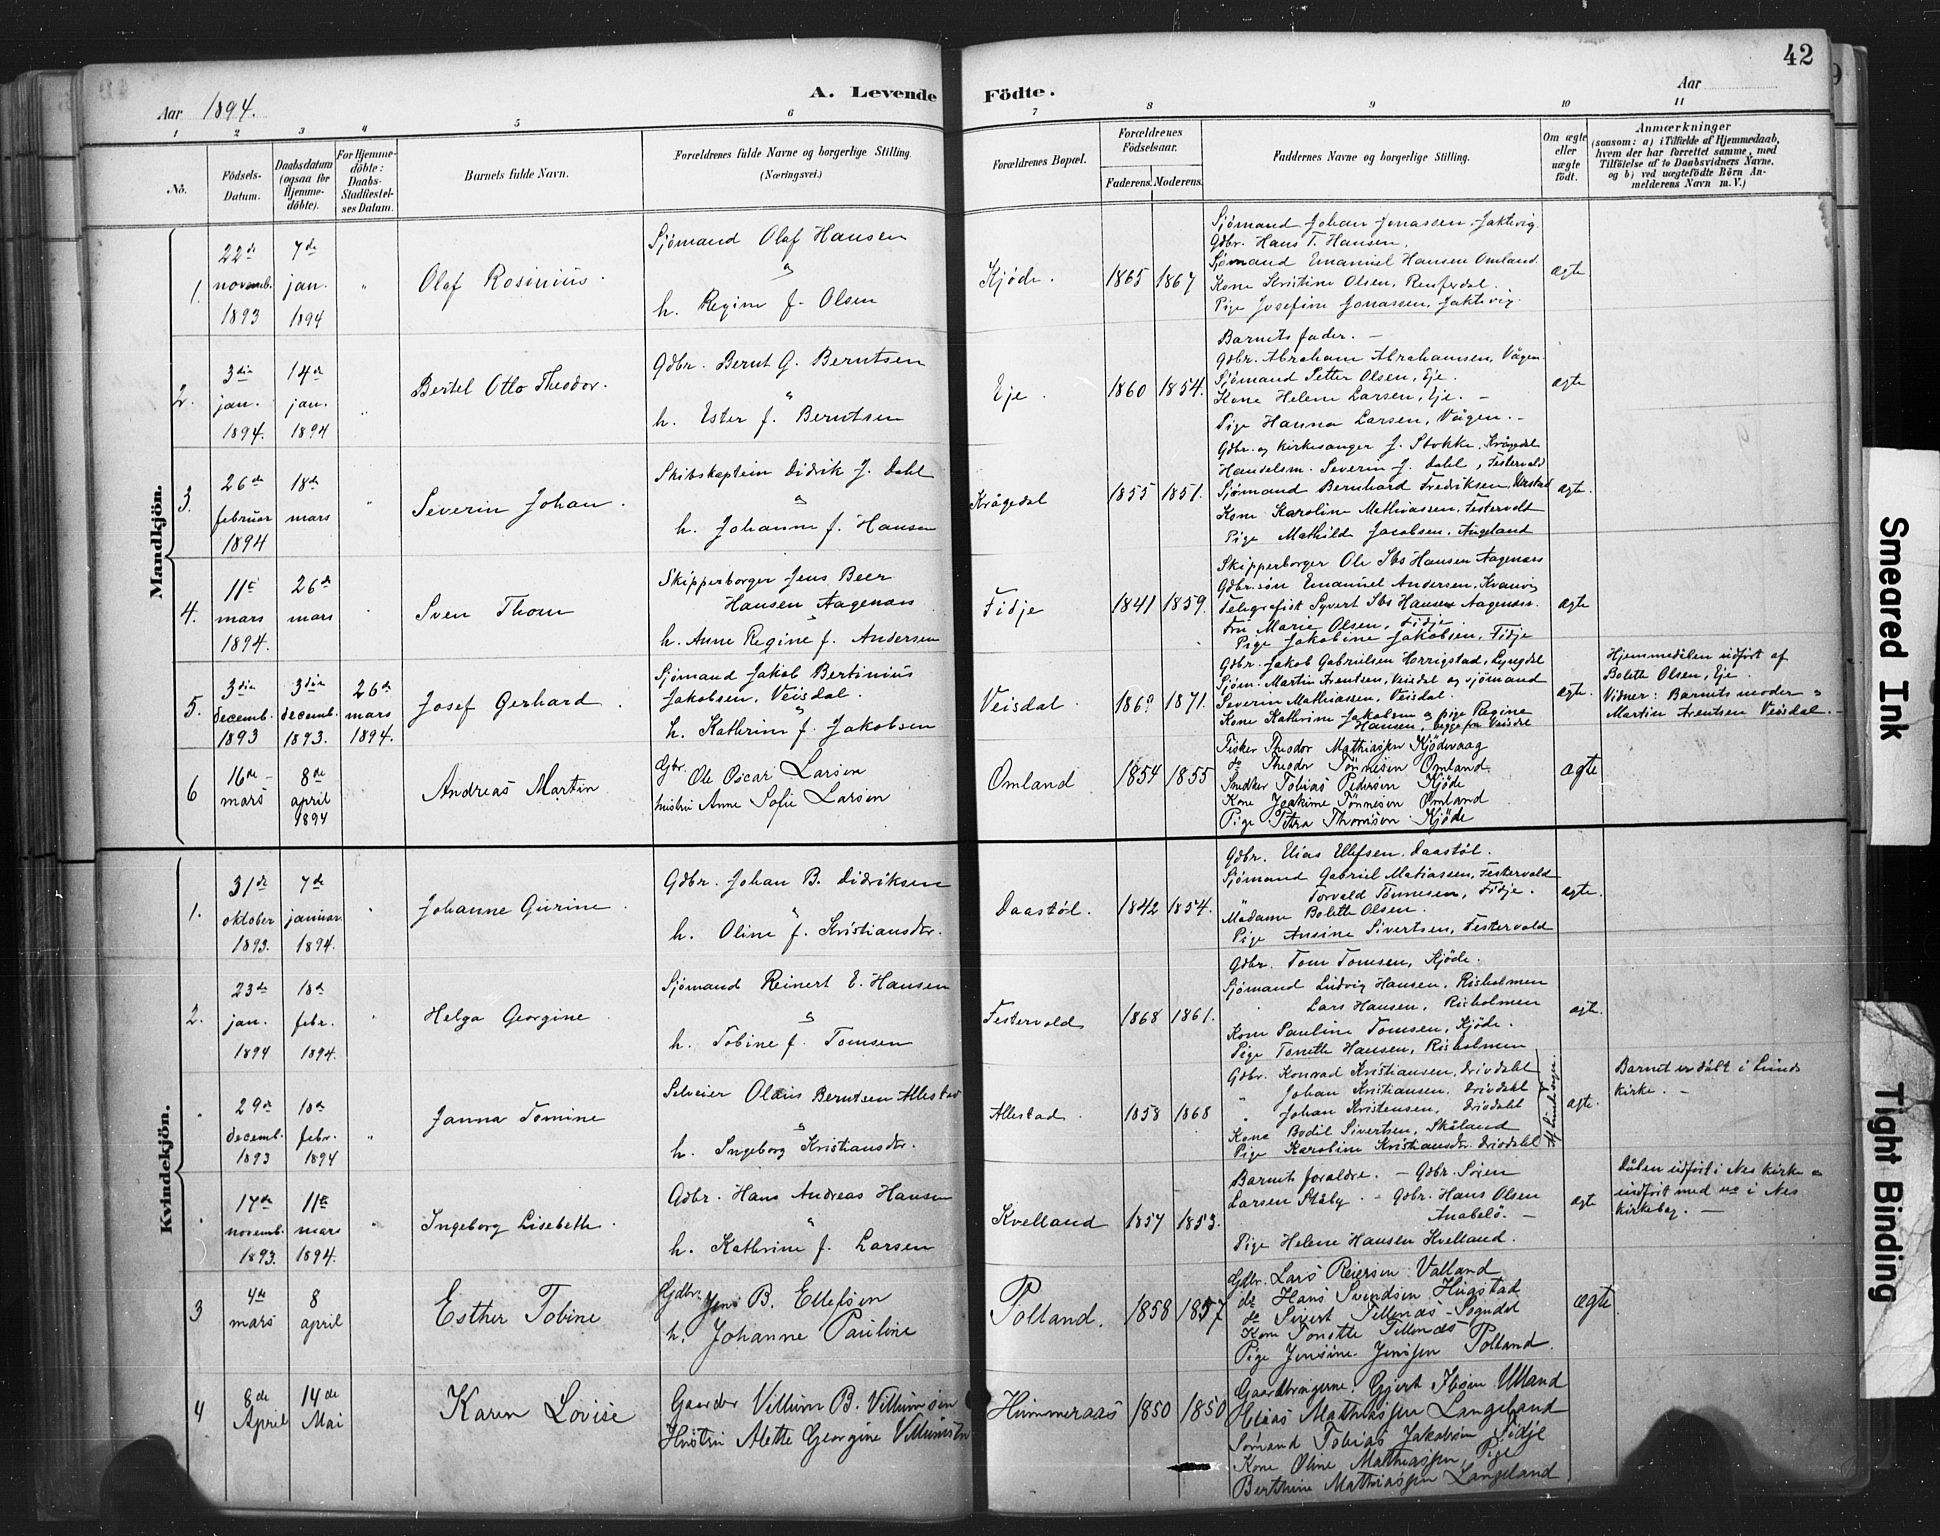 42
Aar 1894.
A. Levende Födte.
Aar
1 2 3 4 5 6 7 8 9 10 11
No.
Födsels-Datum.
Daabsdatum (ogsaa for Hjemme-döbte).
For Hjemme-döbte: Daabs-Stadfæstel-ses Datum.
Barnets fulde Navn.
Forældrenes fulde Navne og borgerlige Stilling. (Næringsvei.)
Forældrenes Bopæl.
Forældrenes Födselsaar.
Faderens. Moderens.
Faddernes Navne og borgerlige Stilling.
Om ægte eller uægte födt.
Anmærkninger
(saasom: a) i Tilfælde af Hjemmedaab, hvem der har forrettet samme, med Tilföielse af to Daabsvidners Navne, og b) ved uægtefödte Börn An-melderens Navn m. V.)
Mandkjön.
1. 22de novemb. 1893
7de jan. 1894
"
Olaf Rosinius.
Sjömand Olaf Hansen
&
h. Regine f. Olsen
Kjöde. 1865 1867
Sjömand Johan Jonassen, Jaktevig.
Gdbr. Hans T. Hansen.
Sjömand Emanuel Hansen Omland
Kone Kristine Olsen, Rensferdal.
Pige Josefine Jonassen, Jaktevig.
ægte
2. 3die jan. 1894.
14de jan. 1894
"
Bertel Otto Theodor.
Gdbr. Bernt G. Berntsen
"
h. Ester f. Berntsen
Eje. 1860 1854.
Barnets fader. –
Gdbr. Abraham Abrahamsen, Vågen
Sjömand Petter Olsen, Eje.
Kone Helene Larsen, Eje. –
Pige Hanna Larsen, Vågen. –
ægte
3. 26de februar 1894
18de mars
"
Severin Johan.
Skibskaptein Didrik J. Dahl
&
h. Johanne f. Hansen
Krågedal 1855 1851.
Gdbr. og kirkesanger J. Stokke, Krågedal
Handelsm. Severin J. Dahl, Festervold
Sjömand Bernhard Fredriksen,
Kone Karoline Mathiassen, Festervold
Pige Mathilde Jacobsen, Angeland
ægte.
4. 11te mars 1894.
26de mars
"
Sven Thom
Skipperborger Jens Beer
Hansen Aagenæs
&
h. Anne Regine f. Andersen
Fidje 1841 1859.
Skipperborger Ole Ibs Hansen Aagenæs
Gdbr.sön Emanuel Andersen, Kvanvig
Telegrafist Syvert Ibs Hansen Aagenæs.
Fru Marie Olsen, Fidje.
Pige Jakobine Jakobsen, Fidje
ægte
5. 3die decemb. 1893
3die decemb. 1893.
26de mars 1894.
Josef Gerhard.
Sjömand Jakob Bertinius
Jakobsen, Veisdal.
&
h. Kathrine f. Jakobsen
Veisdal. 1871.
Gdbr. Jakob Gabrielsen Horrigstad, Lyngdal
Sjöm. Martin Arentsen, Veisdal og sjömand
Severin Mathiassen, Veisdal.
Kone Kathrine Jakobsen og pige Regine
Hansen, begge fra Veisdal
ægte.
Hjemmedåben udfört af
Bolette Olsen, Eje.
Vidner: Barnets moder &
Martin Arentsen Veisdal.
6 16de mars
8de april 1894
Andreas Martin
Gbr. Ole Oscar Larsen
hustru Anne Sofie Larsen
Omland 1854 1855
Fisker Theodor Mathiassen Kjödevaag
do Theodor Tönnesen Omland.
Snedker Tobias Pedersen Kjöde
Kone Joakime Tönnesen Omland
Pige Petra Thomsen Kjöde
ægte
Kvindekjön.
1. 31te oktober 1893.
7de januar 1894.
"
Johanne Gurine.
Gdbr. Johan B. Didriksen
"
h. Oline f. Kristiansdtr.
Daastöl. 1842 1854.
Gdbr. Elias Ellefsen, Daastöl.
Sjömand Gabriel Matiassen, Festervold
" Torvald Tönnesen, Fidje.
Madame Bolette Olsen.
Pige Ansine Sivertsen, Festervold
ægte.
2. 23de jan. 1894
18de febr. 1894.
"
Helga Georgine.
Sjömand Reinert E. Hansen
&
h. Tobine f. Tomsen
Festervold 1868 1861.
Gdbr. Tom Tomsen, Kjöde.
Sjömand Ludvig Hansen, Risholmen
" Lars Hansen, Risholmen
Kone Pauline Tomsen, Kjöde.
Pige Tonette Hansen, Risholmen
ægte.
29de decemb. 1893
18de febr. 1894
"
Janna Tomine
Selveier Olaus Berntsen Allestad
&
h. Ingeborg Kristiansdtr.
Allestad. 1858 1868
Gdbr. Konrad Kristiansen, Drivdahl
" Johan Kristiansen, Drivdahl
" Johan Kristensen, Drivdahl
Kone Bodil Sivertsen, Skåland
Pige Karoline Kristiansdtr. Drivdahl
ægte.
Barnet er döbt i Lunds
kirke. –
17de novemb. 1893.
11te mars 1894.
"
Ingeborg Lisebeth.
Gdbr. Hans Andreas Hansen
"
h. Kathrine f. Larsen
Kvelland 1857 1853.
Barnets forældre. – Gdbr. Sören
Larsen Ståby. – Gdbr. Hans Olsen
Anabelö. –
Pige Helene Hansen Kvelland.
ægte
Dåben udfört i Nes kirke &
indfört med no i Nes
kirkebog. –
3 4de mars
8 april
Esther Tobine
Gdbr. Jens B. Ellefsen
h. Johanne Pauline
Polland. 1858 1857
Gdbr. Lars Reiersen Valland
do Hans Svendsen Hugstad
do Sivert Tellenæs – Sogndal
Kone Tonette Tellenæs
Pige Jensine Jenssen Polland.
ægte
4 8de April
14de Mai
Karen Lovise
Gaardbr Villum B. Villumsen
Hustru Alette Georgine Villumsen
Hummeraas 1850 1850
Gaardbrugerne: Gjert Ibsen Ulland
Elias Mathiassen Langeland
Sömand Tobias Jakobsen Fidje
Kone Oline Mathiassen, Pige
Berthine Mathiassen Langeland
Smeared Ink
Tight Binding